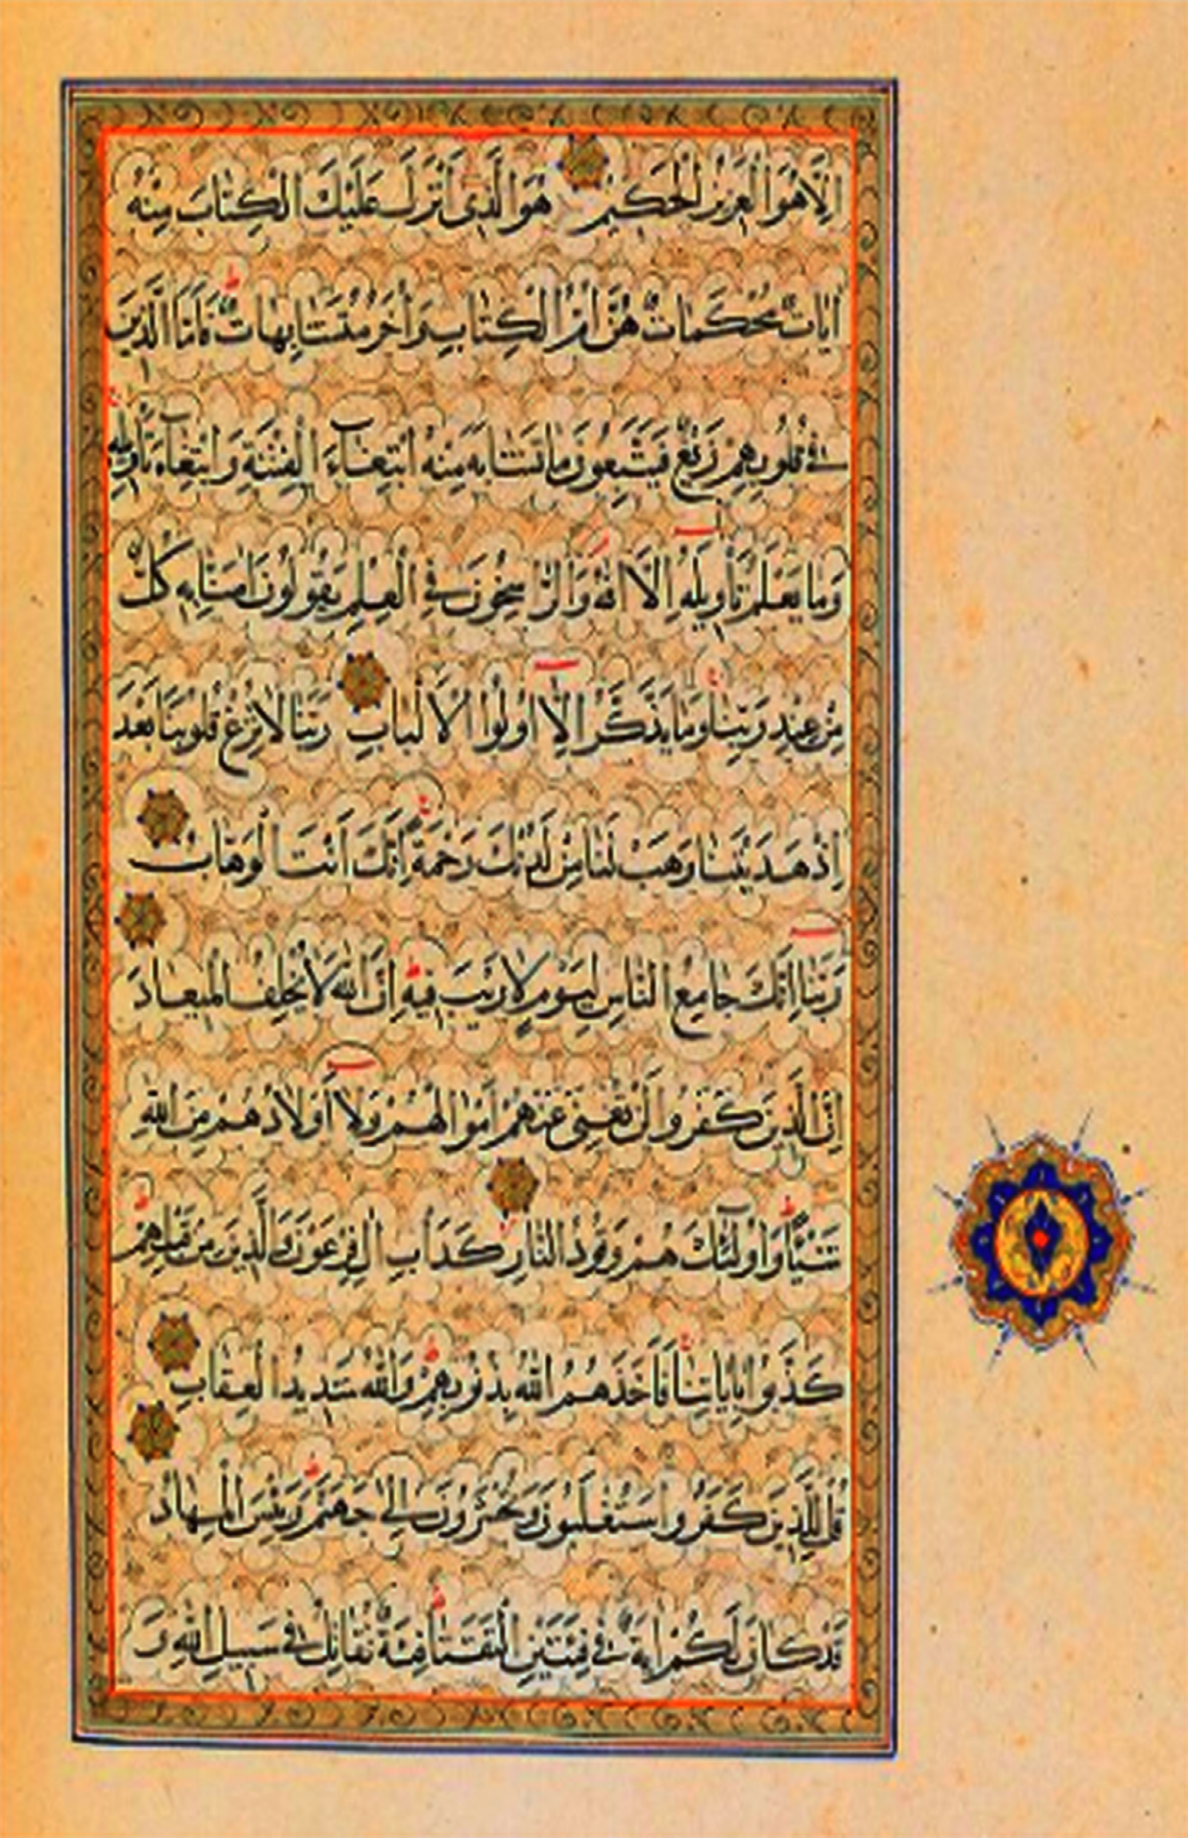 اِلَّا هُوَ الْعَزِيزُ الْحَكِيمُ هُوَ الَّذِى اَنْزَلَ عَلَيْكَ الْكِتَابَ مِنْهُ
اٰيَاتٌ مُحْكَمَاتٌ هُنَّ اُمُّ الْكِتَابِ وَاُخَرُ مُتَشَابِهَاتٌ فَاَمَّا الَّذِينَ
فِى قُلُوبِهِمْ زَيْغٌ فَيَتَّبِعُونَ مَا تَشَابَهَ مِنْهُ ابْتِغَاءَ الْفِتْنَةِ وَابْتِغَاءَ تَأْوِيلِهِ
وَمَا يَعْلَمُ تَأْوِيلَهُ اِلَّا اللّٰهُ وَالرَّاسِخُونَ فِى الْعِلْمِ يَقُولُونَ اٰمَنَّا بِهِ كُلٌّ
مِنْ عِنْدِ رَبِّنَا وَمَا يَذَّكَّرُ اِلَّا اُولُوا الْاَلْبَابِ رَبَّنَا لَا تُزِغْ قُلُوبَنَا بَعْدَ
اِذْ هَدَيْتَنَا وَهَبْ لَنَا مِنْ لَدُنْكَ رَحْمَةً اِنَّكَ اَنْتَ الْوَهَّابُ
رَبَّنَا اِنَّكَ جَامِعُ النَّاسِ لِيَوْمٍ لَا رَيْبَ فِيهِ اِنَّ اللّٰهَ لَا يُخْلِفُ الْمِيعَادَ
اِنَّ الَّذِينَ كَفَرُوا لَنْ تُغْنِىَ عَنْهُمْ اَمْوَالُهُمْ وَلَا اَوْلَادُهُمْ مِنَ اللّٰهِ
شَيْئًا وَاُولٰئِكَ هُمْ وَقُودُ النَّارِ كَدَأْبِ اٰلِ فِرْعَوْنَ وَالَّذِينَ مِنْ قَبْلِهِمْ
كَذَّبُوا بِاٰيَاتِنَا فَاَخَذَهُمُ اللّٰهُ بِذُنُوبِهِمْ وَاللّٰهُ شَدِيدُ الْعِقَابِ
قُلْ لِلَّذِينَ كَفَرُوا سَتُغْلَبُونَ وَتُحْشَرُونَ اِلٰى جَهَنَّمَ وَبِئْسَ الْمِهَادُ
قَدْ كَانَ لَكُمْ اٰيَةٌ فِى فِئَتَيْنِ الْتَقَتَا فِئَةٌ تُقَاتِلُ فِى سَبِيلِ اللّٰهِ وَ